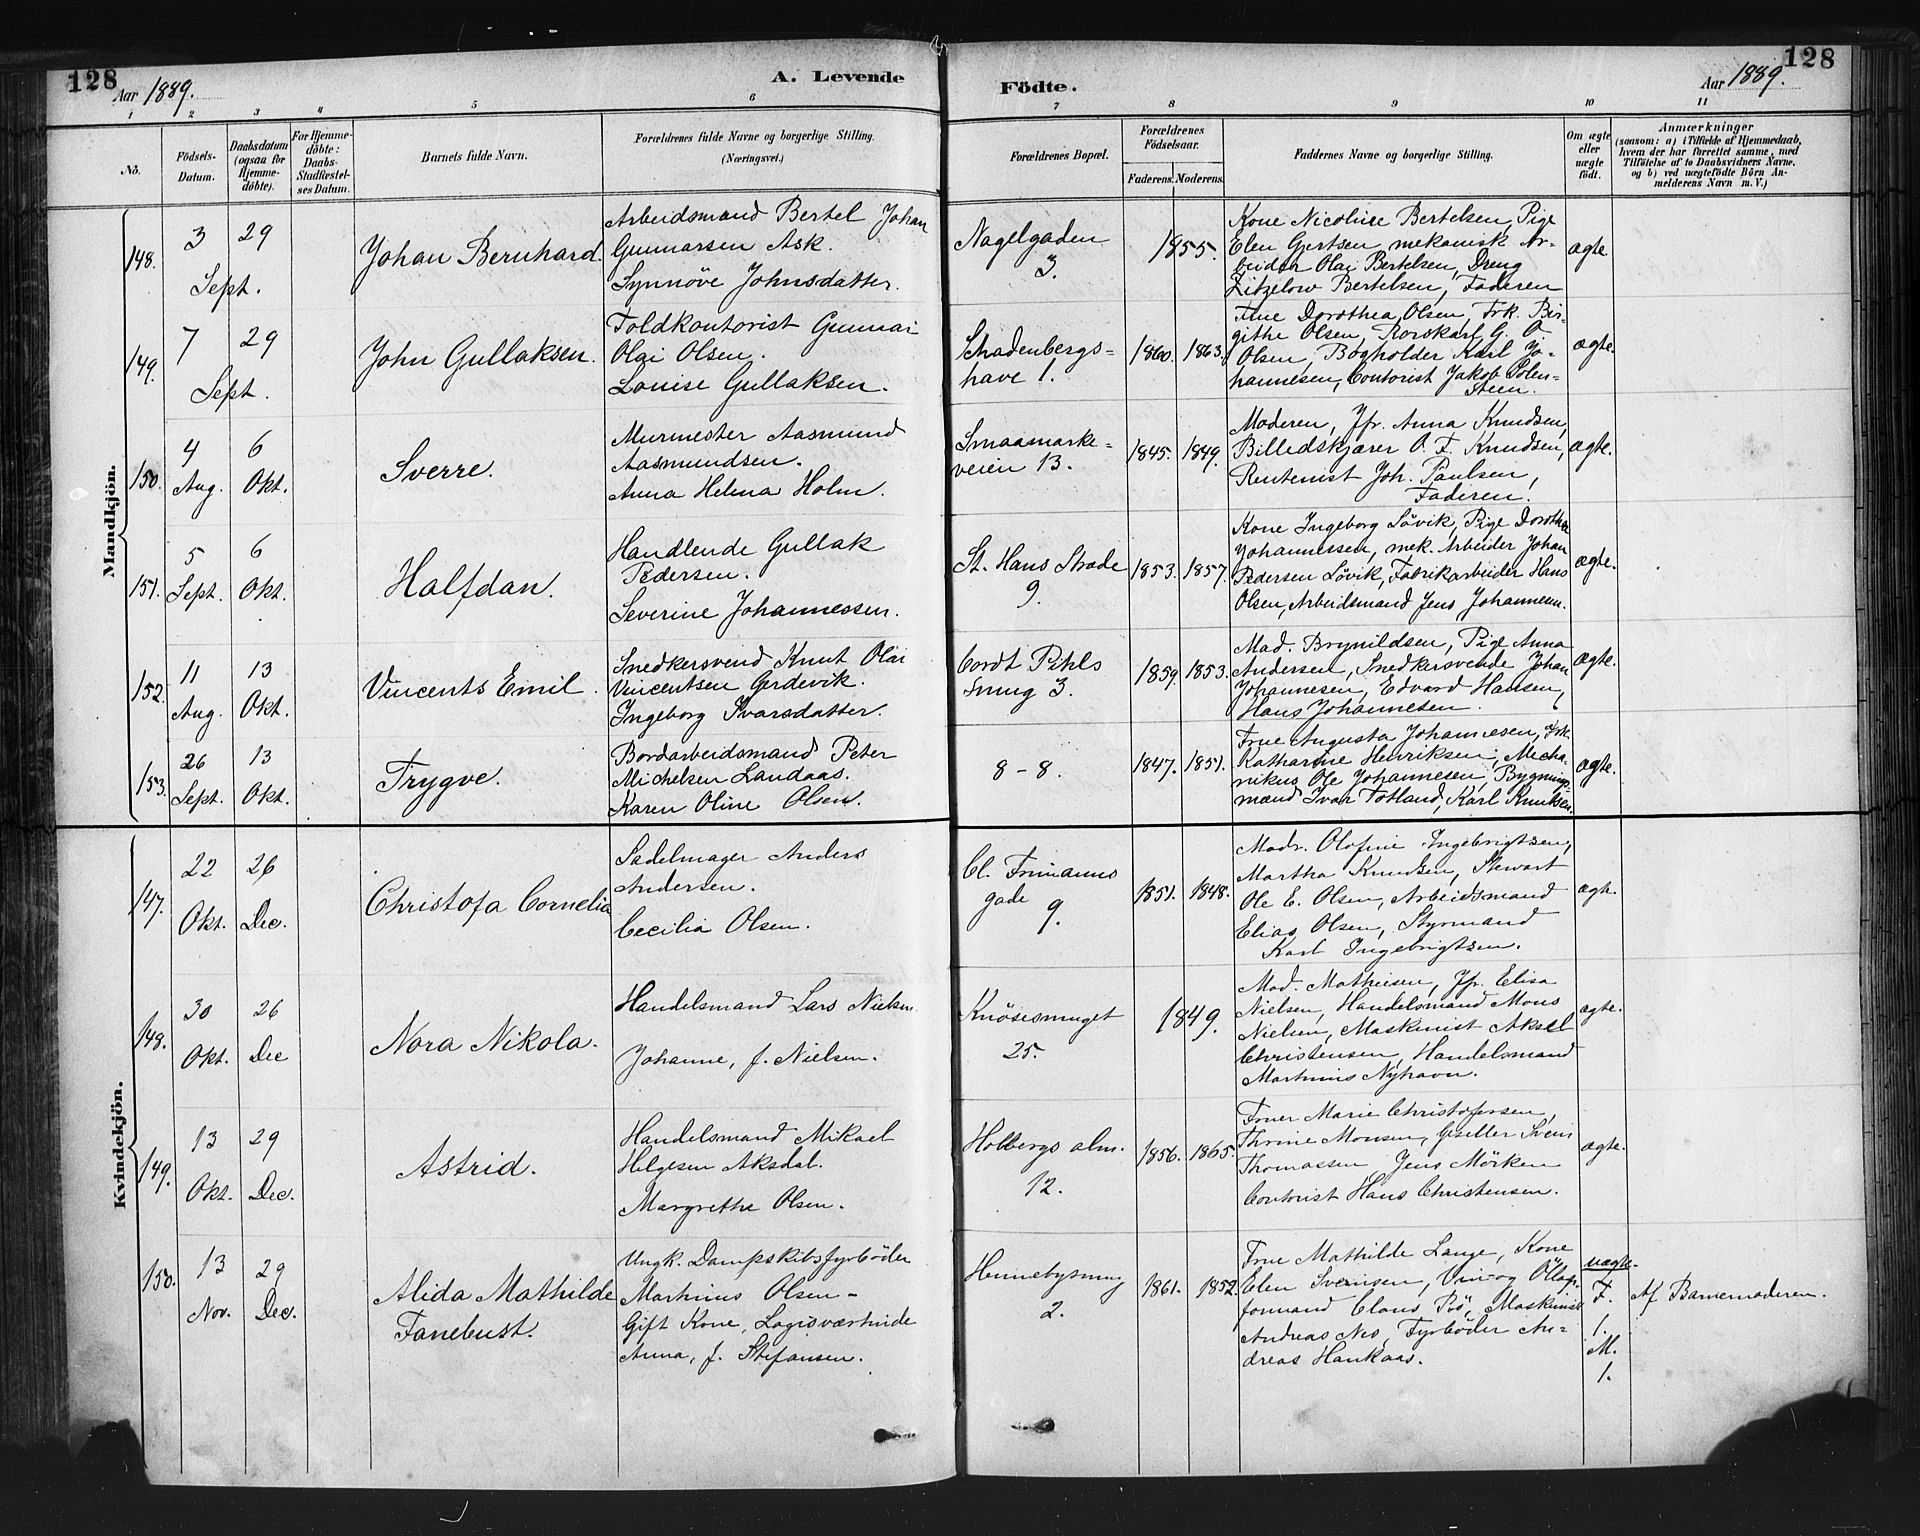 128
Aar 1889.
A. Levende
Födte.
Aar 1889.
128
1 2 3 4 5 6 7 8 9 10 11
No.
Födsels-
Datum.
Daabsdatum
(ogsaa for
Hjemme-
döbte).
For Hjemme-
döbte:
Daabs-
Stadfæstel-
ses Datum.
Barnets fulde Navn.
Forældrenes fulde Navne og borgerlige Stilling.
(Næringsvei.)
Forældrenes Bopæl.
Forældrenes
Födselsaar.
Faderens. Moderens.
Faddernes Navne og borgerlige Stilling.
Om ægte
eller
uægte
födt.
Anmærkninger
(saasom: a) i Tilfælde af Hjemmedaab,
hvem der har forrettet samme, med
Tilföielse af to Daabsvidners Navne,
og b) ved uægtefödte Börn An-
melderens Navn m. V.)
Mandkjön.
148.
3 29
Sept.
Johan Bernhard.
Arbeidsmand Bertel Johan
Gunnarsen Ask.
Synnöve Johnsdatter.
Nagelgaden
3.
1855.
Kone Nicoline Bertelsen, Pige
Elen Gjertsen, mekanisk Ar-
beider Olai Bertelsen, Dreng
Zitzelow Bertelsen, Faderen
ægte
149.
7 29
Sept.
John Gullaksen.
Toldkontorist Gunnar
Olai Olsen.
Louise Gullaksen.
Schadenbergs-
have 1.
1860. 1863.
Frue Dorothea Olsen, Frk. Bir-
githe Olsen, Rorskarl G. O.
Olsen, Bogholder Karl Jo-
hannesen, Contorist Jakob Polen-
Steen.
ægte.
150.
4 6
Aug. Okt.
Sverre.
Murmester Aasmund
Aasmundsen.
Anna Helena Holm.
Smaamarke-
veien 13.
1845. 1849.
Moderen, Jfr. Anna Knudsen,
Billedskjærer O. F. Knudsen,
Rentenist Joh. Paulsen,
Faderen.
ægte.
151.
5 6
Sept. Okt.
Halfdan.
Handlende Gullak
Pedersen.
Severine Johannessen.
St. Hans Stræde
9.
1853. 1857.
Kone Ingeborg Lövik, Pige Dorothea
Johannessen, mek. Arbeider Johan
Pedersen Lövik, Fabrikarbeider Hans
Olsen, Arbeidsmand Jens Johannesen.
ægte.
152.
11 13
Aug. Okt.
Vincents Emil.
Snedkersvend Knut Olai
Vincentsen Gerdevik.
Ingeborg Ivarsdatter.
Cordt Pihls
smug 3.
1859. 1853.
Mad. Brynildsen, Pige Anna
Andersen, Snedkersvende Johan
Johannesen, Edvard Hansen,
Hans Johannesen.
ægte.
153.
26 13
Sept. Okt.
Trygve.
Bordarbeidsmand Peter
Michelsen Landaas.
Karen Oline Olsen.
8 - 8.
1847. 1851.
Frue Augusta Johannesen, Frk.
Katharine Henriksen, Mecha-
nikus Ole Johannesen, Bygnings-
mænd Ivar Totland, Karl Knudsen.
ægte.
Kvindekjön.
147.
22 26
Okt. Dec.
Christofa Cornelia
Sadelmager Anders
Andersen.
Cecilia Olsen.
Cl. Frimanns
gade
9.
1851. 1848.
Madr. Olofine Ingebrigtsen,
Martha Knudsen, Stewart
Ole E. Olsen, Arbeidsmand
Elias Olsen, Styrmand
Karl Ingebrigtsen.
ægte.
148.
30 26
Okt. Dec
Nora Nikola.
Handelsmand Lars Nielsen
Johanne, f. Nielsen.
Knösesmuget
25.
1849.
Mad. Mathiesen, Jfr. Elisa
Nielsen, Handelsmand Mons
Nielsen, Maskinist Aksel
Christensen, Handelsmand
Martinus Nyhavn.
ægte.
149.
13 29
Okt. Dec.
Astrid.
Handelsmand Mikael
Helgesen Aksdal.
Margrethe Olsen.
Holbergs alm.
12.
1856. 1865.
Fruer Marie Christofersen,
Thrine Monsen, Gjseller Svein
Thomassen, Jens Mörken
Contorist Hans Christensen.
ægte.
150.
13 29
Nov. Dec.
Alida Mathilde
Fanebust.
Ungk. Dampskibsfyrböder
Martinus Olsen -
Gift Kone, Logisværtinde
Anna, f. Stefansen.
Hennebysmug
2.
1861. 1852.
Frue Mathilde Lange, Kone
Elen Svensen, Vin- og Öltap-
formand Claus Bö, Maskinist
Andreas Nes, Fyrböder An-
dreas Haukaas.
uægte.
F.
1.
M.
1.
Af Barnemoderen.